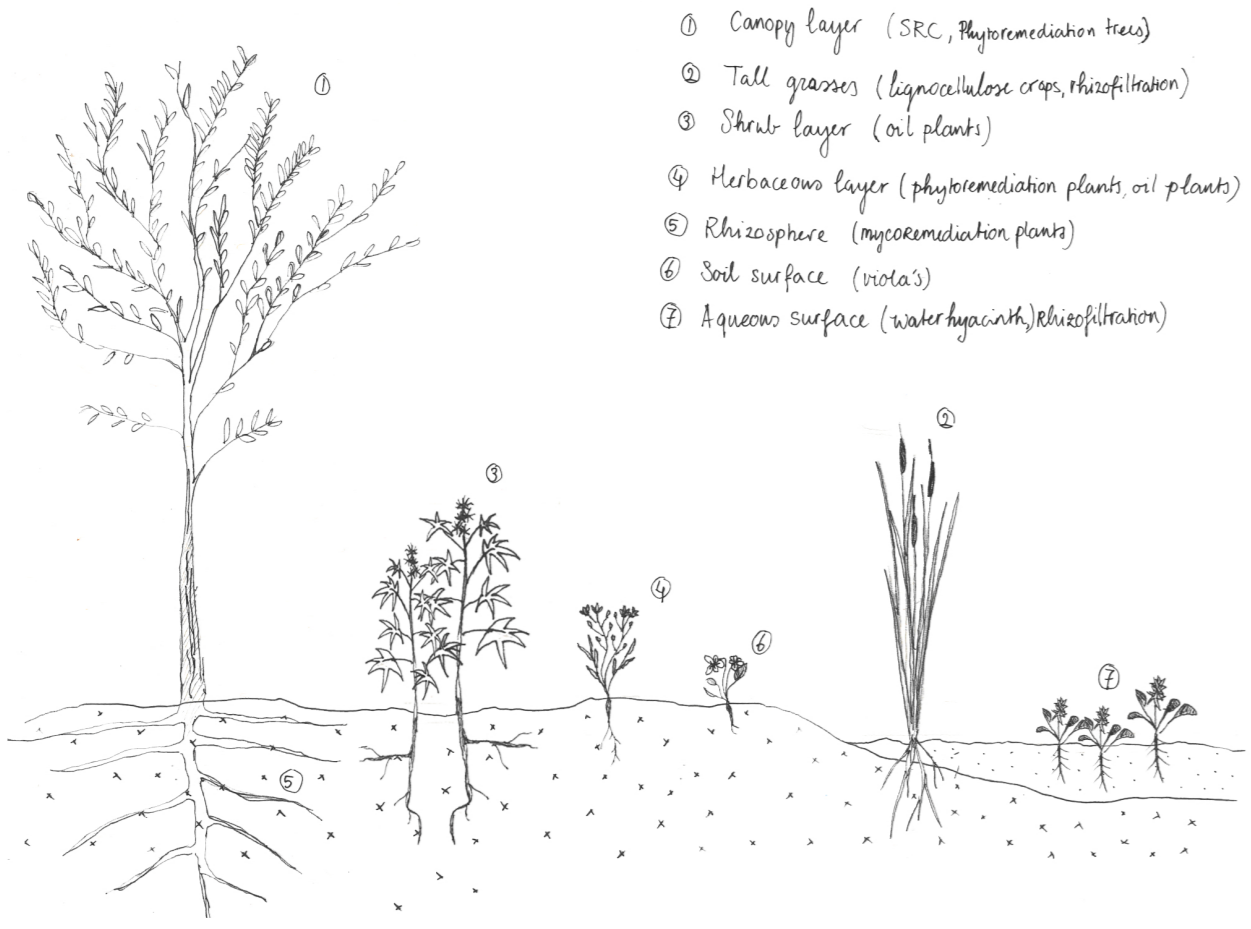 ① Canopy layer (SRC, Phytoremediation trees)
② Tall grasses (lignocellulose crops, rhizofiltration)
③ Shrub layer (oil plants)
④ Herbaceous layer (phytoremediation plants, oil plants)
⑤ Rhizosphere (mycoremediation plants)
⑥ Soil surface (viola's)
⑦ Aqueous surface (waterhyacinth,) Rhizofiltration)
①
②
③
④
⑥
⑦
⑤